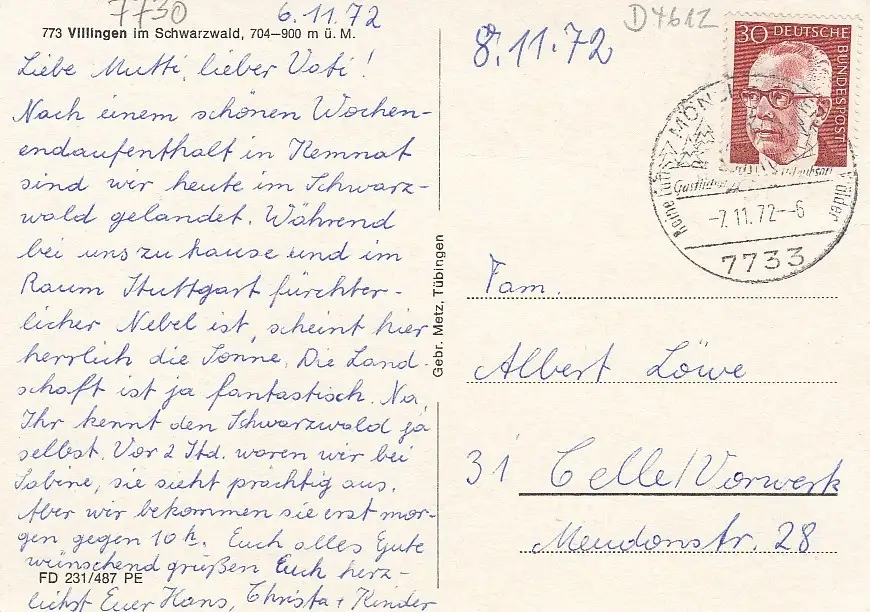 7730
6.11.72
773 Villingen im Schwarzwald, 704–900 m ü. M.
Liebe Mutti, lieber Vati!
Nach einem schönen Wochen-
endaufenthalt in Kemnat
sind wir heute im Schwarz-
wald gelandet. Während
bei uns zu hause und im
Raum Stuttgart fürchter-
licher Nebel ist, scheint hier
herrlich die Sonne. Die Land-
schaft ist ja fantastisch. Na,
Ihr kennt den Schwarzwald ja
selbst. Vor 2 Std. waren wir bei
Sabine, sie sieht prächtig aus.
Aber wir bekommen sie erst mor-
gen gegen 10 h. Euch alles Gute
wünschend grüßen Euch herz-
FD 231/487 PE
lichst Euer Hans, Christa + Kinder
Gebr. Metz, Tübingen
8.11.72
D4612
30 DEUTSCHE BUNDESPOST
7733 MÖNCH
-7.11.72--6
7733
Fam.
Albert Löwe
31 Celle/Vorwerk
Mendonstr. 28